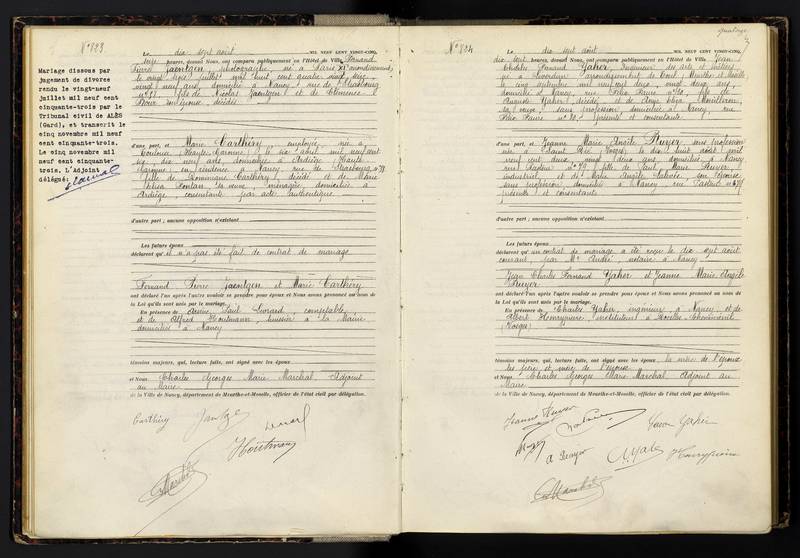 N° 833
Mariage dissous par
jugement de divorce
rendu le vingt-neuf
juillet mil neuf cent
cinquante-trois par le
Tribunal civil de ALÈS
(Gard), et transcrit le
cinq novembre mil neuf
cent cinquante-trois.
Le cinq novembre mil
neuf cent cinquante-
trois. L'Adjoint
délégué:
Le dix sept août MIL NEUF CENT VINGT-CINQ,
seize heures, devant Nous, ont comparu publiquement en l'Hôtel de Ville Fernand
Pierre Jaentgen, photographe, né à Paris
le vingt juillet mil huit cent quatre vingt
vingt neuf ans, domicilié à Nancy rue de Strasbourg
fils de Nicolas Jaentgen et de Clémence
décédés
d'une part, et Marie Carthéry employée, née à
Toulouse (Haute Garonne), le six août mil neuf cent
dix neuf ans, domiciliée à Ardiège (Haute
Garonne) en résidence à Nancy rue de Strasbourg
fille de Dominique Carthéry décédé et de Marie
Fontan sa veuve, ménagère domiciliée à
Ardiège, consentante par acte authentique
d'autre part; aucune opposition n'existant
Les futurs époux
déclarent qu'il n'a pas été fait de contrat de mariage
Fernand Pierre Jaentgen et Marie Carthéry
ont déclaré l'un après l'autre vouloir se prendre pour époux et Nous avons prononcé au nom de
la Loi qu'ils sont unis par le mariage.
En présence de Paul Lienard, comptable,
et de Alfred Houtmann, huissier à la Mairie
domiciliés à Nancy
témoins majeurs, qui, lecture faite, ont signé avec les époux
et Nous Charles Georges Marie Marchal Adjoint
au Maire
de la Ville de Nancy, département de Meurthe-et-Moselle, officier de l'état civil par délégation.
Carthéry
Houtmann
Marchal
N° 834
Le dix sept août MIL NEUF CENT VINGT-CINQ,
dix sept heures, devant Nous, ont comparu publiquement en l'Hôtel de Ville Jean
Charles Fernand Yaher Ingénieur des arts et métiers
né à Liverdun arrondissement de Toul (Meurthe et Moselle)
le cinq octobre mil neuf cent deux, vingt deux ans,
domicilié à Nancy, rue Félix Faure n° 20, fils de
Auguste Yaher décédé et de
sa veuve, sans profession, domiciliée à Nancy, rue
Félix Faure n° 20, présente et consentante
d'une part, et Jeanne Marie Angèle Ruyer sans profession
née à Saint Dié (Vosges), le dix huit août mil
neuf cent deux, vingt deux ans domiciliée à Nancy
rue Pasteur n° 79 fille de Paul Marie Ruyer,
industriel, et de Marie Angèle son épouse
sans profession, domiciliés à Nancy, rue Pasteur n° 79
présents et consentants
d'autre part; aucune opposition n'existant
Les futurs époux
déclarent qu'un contrat de mariage a été reçu le dix sept août
courant, par Me André, notaire à Nancy
Jean Charles Fernand Yaher et Jeanne Marie Angèle
Ruyer
ont déclaré l'un après l'autre vouloir se prendre pour époux et Nous avons prononcé au nom de
la Loi qu'ils sont unis par le mariage.
En présence de Charles Yaher, ingénieur à Nancy, et de
Albert Henryprime, instituteur à
(Vosges)
témoins majeurs, qui, lecture faite, ont signé avec les époux, la mère de l'époux
les père et mère de l'épouse
et Nous Charles Georges Marie Marchal Adjoint au
Maire
de la Ville de Nancy, département de Meurthe-et-Moselle, officier de l'état civil par délégation.
Jeanne Ruyer
Yaher
Marchal